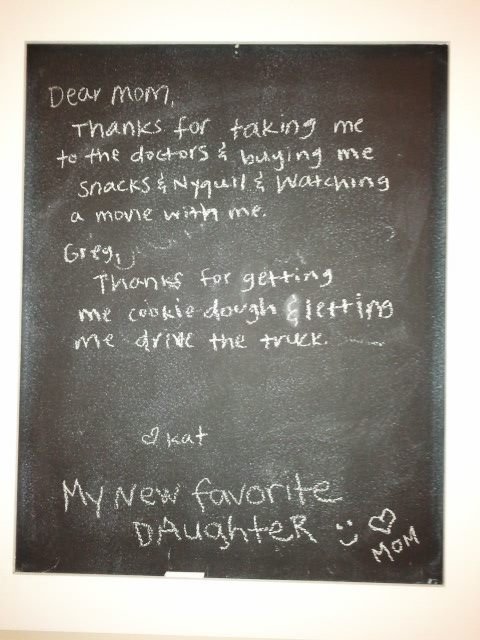 Dear Mom,
Thanks for taking me
to the doctors & buying me
snacks & Nyquil & Watching
a movie with me.
Greg,
Thanks for getting
me cookie dough & letting
me drive the truck.
♡ Kat
My New favorite
DAughteR :) ♡
MOM